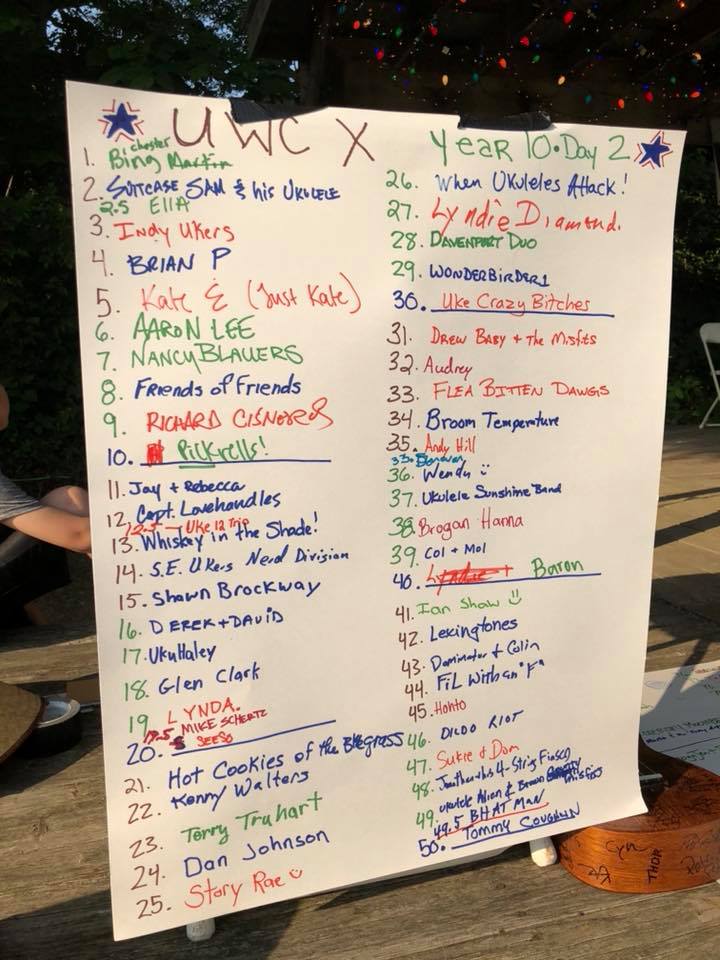 UWC X Year 10 • Day 2
1. Bing Chester Martin
2. SUITCASE SAM & his UKULELE
2.5 ELLA
3. Indy Ukers
4. BRIAN P
5. Kate & (Just Kate)
6. AARON LEE
7. NANCY BLAUERS
8. Friends of Friends
9. RICHARD
10. Pickrells!
11. Jay + Rebecca
12. Capt. Lovehandles
12.5 — Uke 12 Trio
13. Whiskey in the Shade!
14. S.E. Ukers Nerd Division
15. Shawn Brockway
16. DEREK + DAVID
17. UkuHaley
18. Glen Clark
19. LYNDA.
19.5 MIKE SCHERTZ
20. SEESO
21. Hot Cookies of the Bluegrass
22. Kenny Walters
23. Terry Truhart
24. Dan Johnson
25. Story Rae
26. When Ukuleles Attack!
27. Lyndie Diamond.
28. DAVENPORT DUO
29. WONDERBIRDER1
30. Uke Crazy Bitches
31. DREW BABY + the Misfits
32. Audrey
33. FLEA BITTEN DAWGS
34. Broom Temperature
35. Andy Hill
Donovan
36. Wendy
37. Ukulele Sunshine Band
38. Brogan Hanna
39. Col + Mol
40. Baron
41. Ian Shaw
42. Lexingtones
43. Dominator & Colin
44. FiL With an "F"
45. Hohto
46. DILDO RIOT
47. Sukie & Dom
48. Jonathan + his 4-String Fiasco
49. Ukulele Alien & Brown Misfits
49.5 BHAT MAN
50. TOMMY COUGHLIN
Cyn
THOR